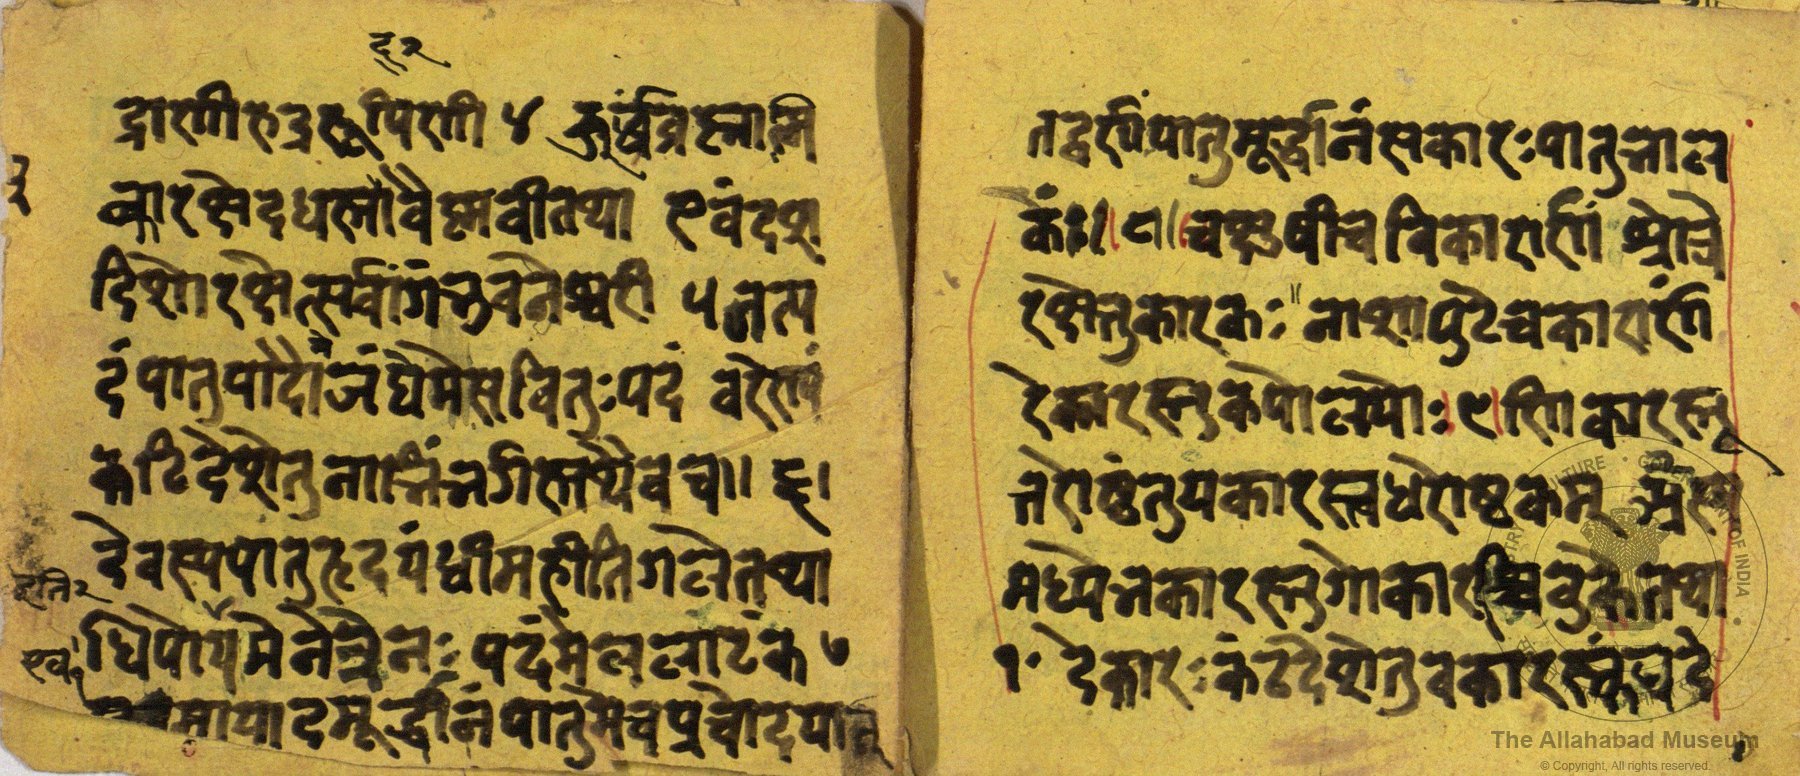 द्र२
द्राणीरुद्ररूपिणी ४ ऊर्ध्वंब्रह्माणि
कारक्षेदधस्ताद्वैष्णवीतथा एवंदश
दिशोरक्षेत्सर्वांगंभुवनेश्वरी ५ तत्प
दंपातुपादौजंघेमेसवितुःपदं वरेण्यं
कटिदेशेतुनाभिंभर्गस्तथैवच॥ ६।
देवस्यपातुहृदयंधीमहीतिगलेतथा
धियोयोमेनेत्रेनः पदंमेललाटकं ७
पातुमेचप्रचोदयात्
तद्वर्णंपातुमूर्द्धानंसकारःपातुभाल
कं॥ ८॥ चक्षुषीचविकारार्णो श्रोत्रे
रक्षेत्तुकारकः॥ नाशापुटेवकारार्णो
रेकारस्तुकपोलयोः। ९। णिकारस्तू
त्तरोष्ठंतुयकारस्त्वधरोष्ठकम्
मध्येभकारस्तुर्गोकारश्चिवुकेतथा
१॰ देकारःकंठदेशेतुवकारस्कंधदे
The Allahabad Museum
© Copyright, All rights reserved.